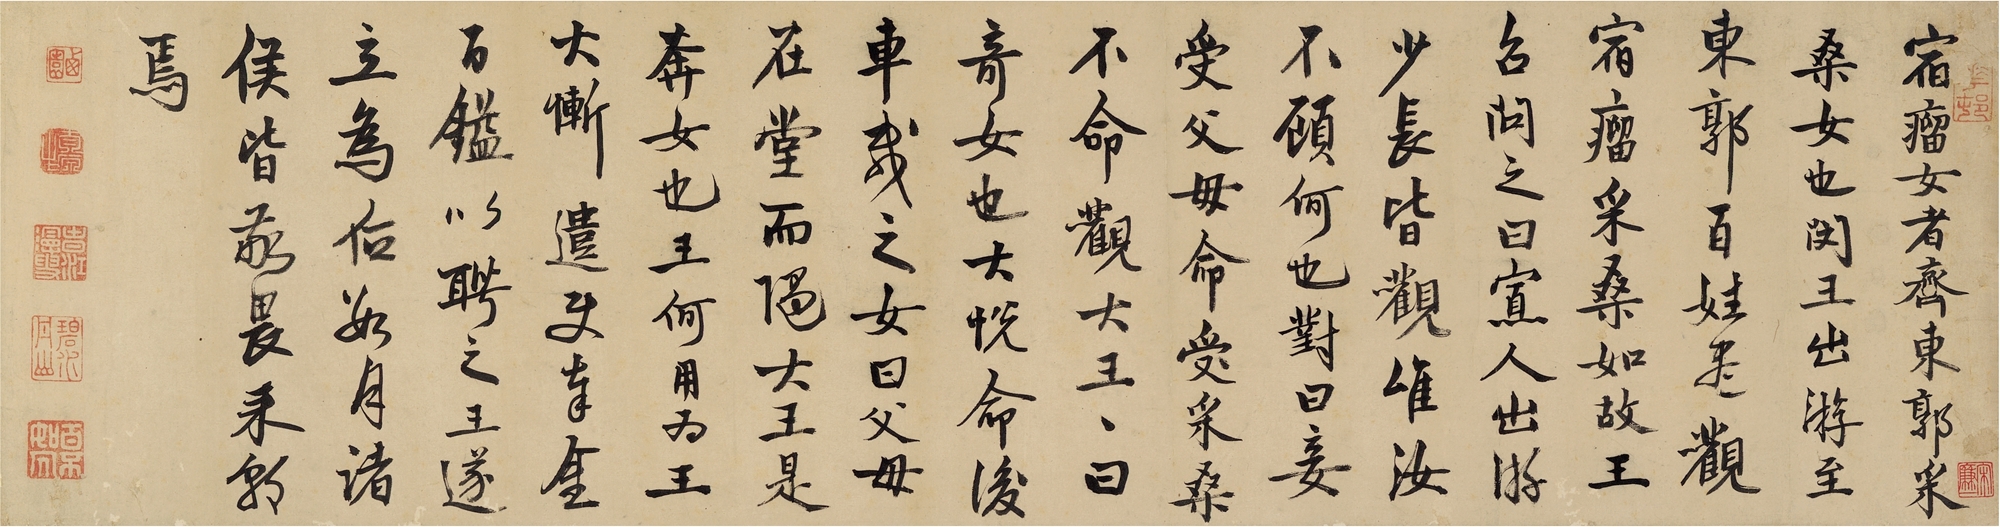 宿瘤女者齊東郭采
桑女也閔王出游至
東郭百姓盡觀
宿瘤采桑如故王
召問之曰寡人出游
少長皆觀唯汝
不顧何也對曰妾
受父母命受采桑
不命觀大王〻曰
奇女也大悅命後
車載之女曰父母
在堂而隨大王是
奔女也王何用為王
大慚遣使奉金
百鎰以聘之王遂
立為后數月諸
侯皆敬畏來朝
焉